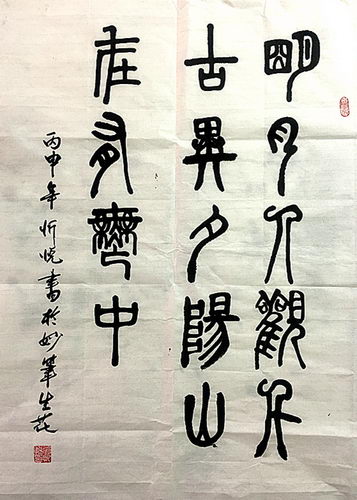 明月人觀今
古異夕陽山
在有無中
丙申年忻悦書於妙筆生花